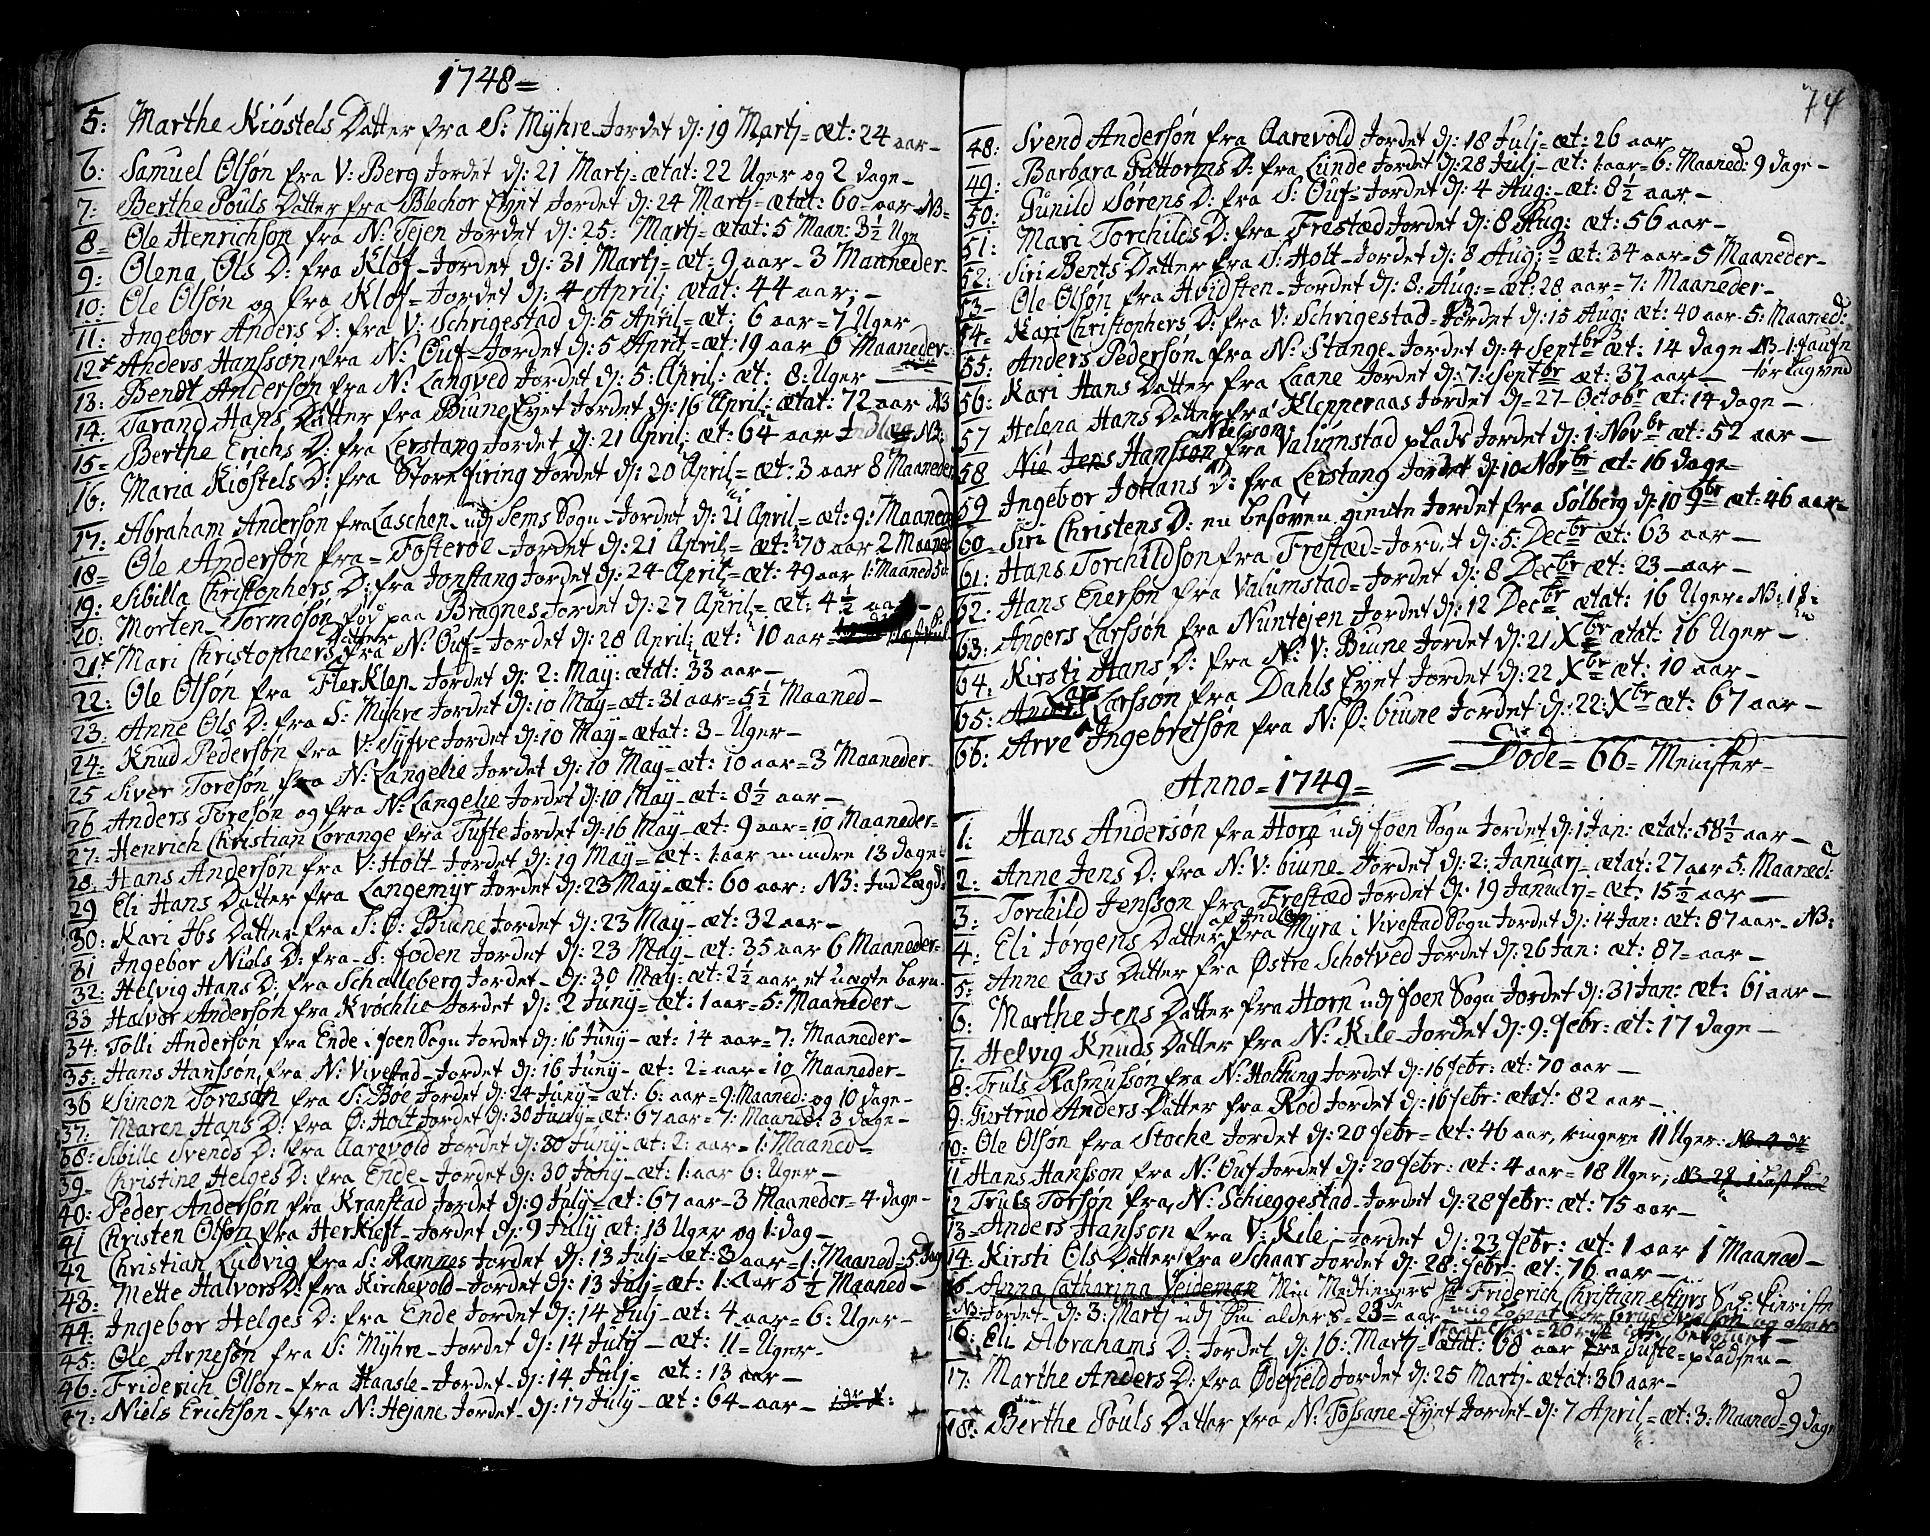 1748=
5: Marthe Kiøstels Datter fra S: Myhre Jordet d: 19 Martj= æt: 24 aar-
6: Samuel Olsøn fra V: Berg Jordet dj: 21 Martj= ætat: 22 Uger og 2 dage-
7: Berthe Pouls Datter fra Blechor Eyet Jordet dj: 24 Martj= ætat: 60= aar= NB=
8= Ole Henrichsøn fra N: Tejen Jordet dj: 25: Martj= ætat: 5 Maan: 3½ Uge
9: Olena Ols D: fra Kløf- Jordet dj: 31 Martj= æt: 9 aar- 3 Maaneder-
10: Ole Olsøn og fra Kløf= Jordet dj: 4 April; ætat: 44 aar;-
11: Ingebor Anders D: fra V: Schrigestad dj: 5 April= æt: 6 aar= 7 Uger
12 Anders Hanssøn fra N: Ouf= Jordet dj: 5 April= æt: 19 aar 6 Maaneder-
13: Bendt Andersøn fra N: Langved Jordet dj: 5: April: æt: 8: Uger
14: Tarand Hans Datter fra Biune Eyet Jordet dj: 16 April: ætat: 72 aar NB
15= Berthe Erichs D: fra Lerstang Jordet dj: 21 April; æt: 64 aar NB:
16: Maria Kiøstels D: fra Store Firing Jordet dj: 20 April= æt: 3 aar 8 Maaneder
17: Abraham Andersøn fra Laschen udj Sems Sogn- Jordet dj: 21 April= æt: 9: Maaned
18= Ole Andersøn fra= Fosterøe- Jordet dj: 21 April= æt: 70 aar 2 Maaned
19: Sibilla Christophers D: fra Jonstang Jordet dj: 24 April= æt: 49 aar 1: Maaned
20: Morten Tormøsøn paa Bragnes Jordet dj: 27 April= æt: 4½ aar-
21 Mari Christophers Datter fra N: Ouf= Jordet dj: 28 April; æt: 10 aar
22: Ole Olsøn fra Herklep- Jordet dj: 2: May: ætat: 33 aar-
23: Anne Ols D: fra S: Myhre Jordet dj: 10 May= æt: 31 aar= 5½ Maaned-
24: Knud Pedersøn fra V: Syfve Jordet dj: 10 May- ætat: 3- Uger-
25 Siver Toresøn fra N: Langelie Jordet dj: 10 May= æt: 10 aar= 3 Maaneder-
26 Anders Toresøn og fra N: Langelie Jordet dj: 10 May- æt: 8½ aar-
27: Henrich Christian Lorange fra Tufte Jordet dj: 16 May- æt: 9 aar= 10 Maaneder=
28. Hans Andersøn fra V: Holt- Jordet dj: 19 May= æt: 1: aar mindre 13 dage:
29 Eli Hans Datter fra Langemyr Jordet dj: 23 May= æt: 60 aar: NB: Indlægd:
30: Kari Ibs Datter fra S: Ø: Biune Jordet dj: 23 May- æt: 32 aar-
31 Ingebor Niels D: fra- S: Foden Jordet dj: 23 May- æt: 35 aar 6 Maaneder-
32: Helvig Hans D: fra Schalleberg Jordet- dj: 30 May= æt: 2½ aar, et uægte barn.
33 Halvor Andersøn fra Kvochlie Jordet dj: 2 Juny= æt: 1 aar= 5: Maaneder-
34: Tolli Andersøn fra Ende i Foen Sogn Jordet dj: 16 Juny- æt: 14 aar= 7: Maaneder-
35: Hans Hanssøn, fra N: Vivestad- Jordet dj: 16 Juny- æt: 2= aar= 10 Maaneder-
36 Simon Toresøn fra S: Bøe Jordet dj: 24 Juny= æt: 6: aar= 9: Maaned: og 10 dage-
37: Maren Hans D: fra Ø: Holt Jordet dj: 30 Juny= æt: 67 aar= 7: Maaned: 3 dage-
38: Sibille Svends D: fra Aarevold Jordet dj: 30 Juny- æt: 2: aar- 1: Maaned-
39- Christine Helges D: fra Ende- Jordet dj: 30 Juny- æt: 1: aar 6: Uger-
40: Peder Andersøn fra Kranstad Jordet dj: 9 July= æt: 67 aar- 3 Maaneder= 4= dage-
41 Christen Olsøn fra Herkleft- Jordet dj: 9 July æt; 13 Uger og 1: dag-
42 Christian Ludvig fra S: Ramnes Jordet dj: 13 Julj= æt: 3 aar= 1: Maaned= 5: dag
43: Mette Halvors D: fra Kirchevold- Jordet dj: 13 Julj= æt: 1: aar 5½ Maaned-
44: Ingebor Helges D: fra Ende Jordet dj: 14 Julj- æt: 4- aar= 6: Uger-
45: Ole Arnesøn fra S: Myhre- Jordet dj: 14 July- æt: 11= Uger-
46: Friderich Olsøn- fra Haasle- Jordet- dj: 14 Julj= æt: 13 aar-
47: Niels Erichsøn- fra N: Hejane Jordet- dj: 17 July- æt: 64- aar-
74
48: Svend Andersøn fra Aarevold Jordet dj: 18 Julj= æt: 26 aar
49: Barbara Guttorms D: fra Lunde Jordet dj: 28 Julj- æt: 1: aar= 6: Maaned: 9 dage-
50: Gunild Sørens D: fra S: Ouf= Jordet dj: 4 Aug:- æt: 8½ aar-
51: Mari Torchilds D: fra Frestæd Jordet dj: 8 Aug: æt: 56 aar-
52: Siri Bents Datter fra S: Holt- Jordet dj: 8 Aug: æt: 34 aar= 5 Maaneder-
53- Ole Olsøn fra Hvidsten- Jordet dj: 8: Aug:= æt: 28 aar= 7: Maaneder-
54= Kari Christophers D: fra V: Schrigestad- Jordet dj: 15 Aug: æt: 40 aar- 5: Maaned:
55: Anders Pedersøn- fra N: Stange- Jordet dj: 4 Septbr æt: 14 dage
56: Kari Hans Datter fra Laane Jordet dj: 7: Septbr æt: 37 aar-
57 Helena Hans Datter fra Klepperaas Jordet dj= 27- Octobr æt: 14 dage-
58 Nielssøn fra Valumstad plads Jordet dj: 1: Novbr æt: 52 aar-
59 Ingebor Johans D: fra Lerstang Jordet dj: 10 Novbr æt: 16 dage=
60= Siri Christens D: en besøven giente Jordet fra Solberg dj: 10 9br æt: 46 aar-
61: Hans Torchildsøn fra Frestæd= Jordet dj: 5: Decbr æt: 63 aar-
62: Hans Enersøn fra Valumstad= Jordet dj: 8 Decbr æt: 23- aar-
63: Anders Larssøn fra Nuntejen Jordet dj: 12 Decbr ætat: 16 Uger= NB: 18=
64: Kirsti Hans D: fra N: V: Biune Jordet dj: 21 Xbr ætat: 16 Uger-
65: Lars Larssøn fra Dahls Eyet Jordet dj: 22 Xbr æt: 10 aar-
66: Arve Ingebretsøn fra N: Ø: biune Jordet dj: 22: Xbr æt: 67 aar-
Døde= 66= Menisker-
Anno= 1749=
1: Hans Andersøn fra Horn udj Foen Sogn Jordet dj: 1 Jan: ætat: 58½ aar-
2: Anne Jens D: fra N: V: biune- Jordet dj: 2: Januarj- ætat: 27 aar 5: Maaned:
3: Torchild Jenssøn fra Frestæd Jordet dj: 19 Januarj= æt: 15½ aar-
4: Eli Jørgens Datter fra Myra i Vivestad Sogn Jordet dj: 14 Jan: æt: 87 aar- NB:
5: Anne Lars Datter fra Østre Schotved Jordet dj: 26 Jan: æt: 87= aar-
6: Marthe Jens Datter fra Horn udj Foen Sogn Jordet dj: 31 Jan: æt: 61 aar-
7: Helvig Knuds Datter fra N: Kile- Jordet dj: 9: Febr: æt: 17 dage-
8: Truls Rasmussøn fra N: Holtung Jordet dj: 16 Febr: æt: 70 aar-
9: Giertrud Anders Datter fra Rød Jordet dj: 16 Febr: ætat: 82 aar-
10: Ole Olsøn fra Stoche Jordet dj: 20 Febr= æt: 46 aar, ringere 11 Uger:
11 Hans Hanssøn fra N: Ouf Jordet dj: 20 Febr: æt: 4 aar= 18 Uger;
12 Truls Torsøn fra N: Schieggestad- Jordet dj: 28 Febr: æt: 75 aar-
13= Anders Hanssøn fra V: Kile- Jordet dj: 23 Febr: æt: 1 aar 1 Maaned-
14: Kirsti Ols Datter fra Schaar Jordet dj: 28: Febr: æt: 76 aar-
15- Anna Catharina Veideman Min Medtieners Hr Friderich Christian
NB: Jordet- dj: 3: Martj udj Sin alders= 23de aar
16: Eli Abrahams D: Jordet dj: 16: Martj= ætat: 68 aar fra Tufte= pladsen-
17: Marthe Anders D: fra Ødefield Jordet dj: 25 Martj- ætat: 36 aar-
18: Berthe Pouls Datter fra N: Fossane- Eyet Jordet- dj: 7 April= æt: 3: Maaned= 9 dage